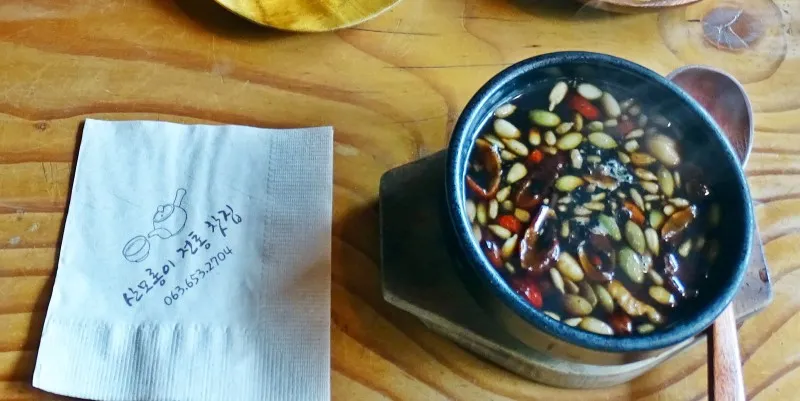 산모퉁이 전통찻집
063.653.2704